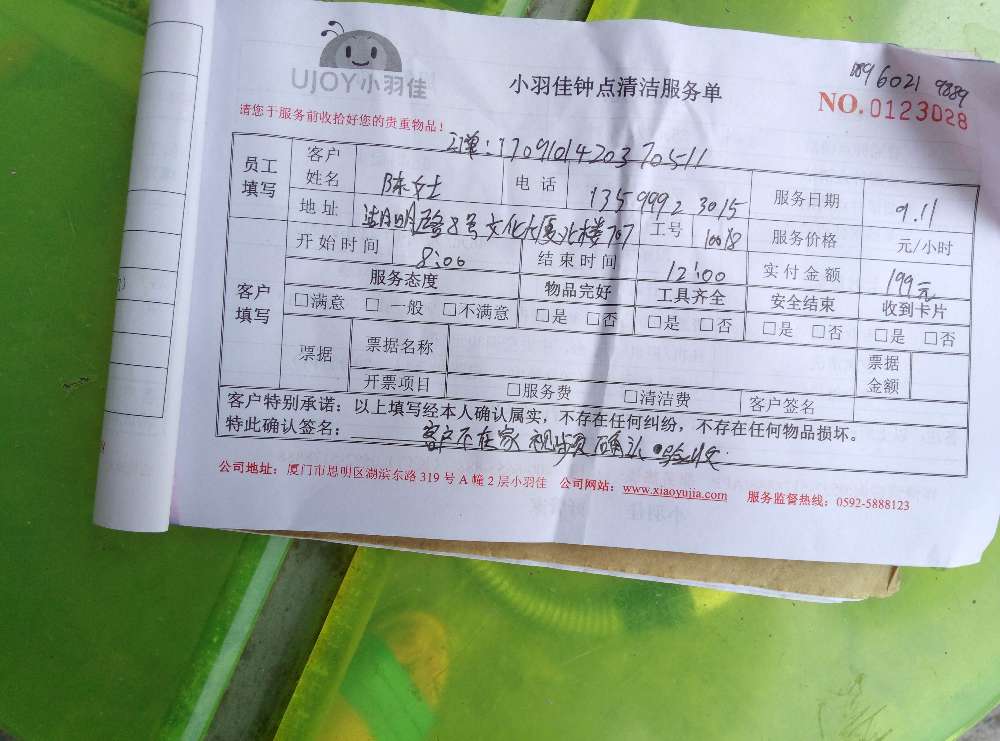 UJOY小羽佳
小羽佳钟点清洁服务单
NO.0123028
请您于服务前收拾好您的贵重物品！
订单：1709101420370511
员工填写 客户姓名 陈女士 电话 13599923015 服务日期 9.11
地址 湖明路8号文化大厦北楼707 工号 10018 服务价格 元/小时
开始时间 8:00 结束时间 12:00 实付金额 199元
客户填写 服务态度 物品完好 工具齐全 安全结束 收到卡片
□满意 □一般 □不满意 □是 □否 □是 □否 □是 □否 □是 □否
票据 票据名称 票据金额
开票项目 □服务费 □清洁费 客户签名
客户特别承诺：以上填写经本人确认属实，不存在任何纠纷，不存在任何物品损坏。
特此确认签名： 客户不在家 视频确认 验收
公司地址：厦门市思明区湖滨东路319号A幢2层小羽佳 公司网站：www.xiaoyujia.com 服务监督热线：0592-5888123